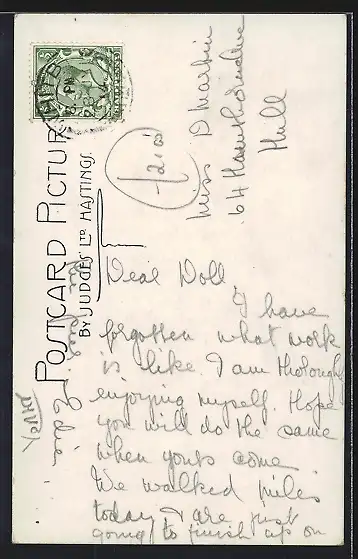 POSTCARD PICTUR
BY JUDGES LTD HASTINGS.
Miss D Martin
64 Hawthorndene
Hull
Dear Doll
I have
forgotten what work
is like. I am thoroughly
enjoying myself. Hope
you will do the same
when yours come
We walked miles
today & are just
going to finish up on